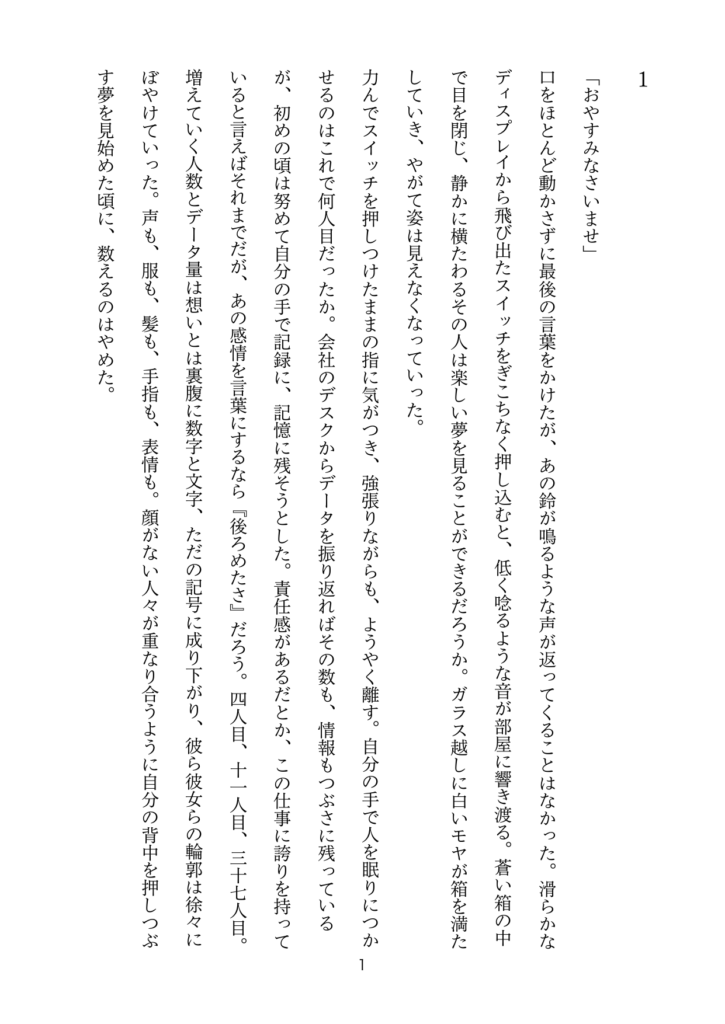 1
「おやすみなさいませ」
口をほとんど動かさずに最後の言葉をかけたが、あの鈴が鳴るような声が返ってくることはなかった。滑らかな
ディスプレイから飛び出たスイッチをぎこちなく押し込むと、低く唸るような音が部屋に響き渡る。蒼い箱の中
で目を閉じ、静かに横たわるその人は楽しい夢を見ることができるだろうか。ガラス越しに白いモヤが箱を満た
していき、やがて姿は見えなくなっていった。
力んでスイッチを押しつけたままの指に気がつき、強張りながらも、ようやく離す。自分の手で人を眠りにつか
せるのはこれで何人目だったか。会社のデスクからデータを振り返ればその数も、情報もつぶさに残っている
が、初めの頃は努めて自分の手で記録に、記憶に残そうとした。責任感があるだとか、この仕事に誇りを持って
いると言えばそれまでだが、あの感情を言葉にするなら『後ろめたさ』だろう。四人目、十一人目、三十七人目。
増えていく人数とデータ量は想いとは裏腹に数字と文字、ただの記号に成り下がり、彼ら彼女らの輪郭は徐々に
ぼやけていった。声も、服も、髪も、手指も、表情も。顔がない人々が重なり合うように自分の背中を押しつぶ
す夢を見始めた頃に、数えるのはやめた。
1